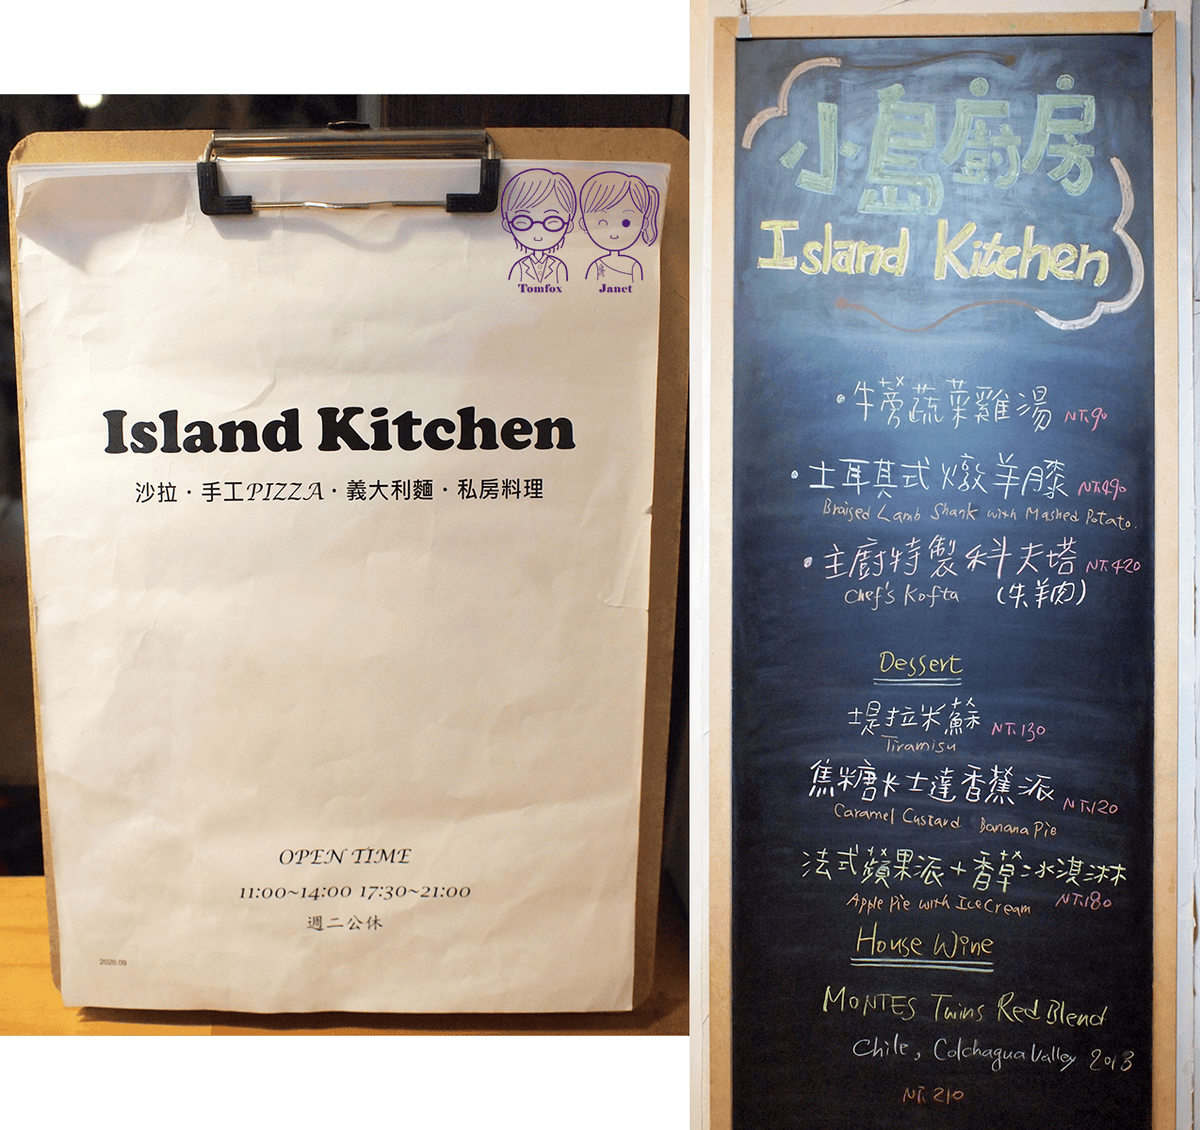 Tomfox Janet
Island Kitchen
沙拉・手工PIZZA・義大利麵・私房料理
OPEN TIME
11:00~14:00 17:30~21:00
週二公休
2020.09
小島廚房
Island Kitchen
・牛蒡蔬菜雞湯 NT.90
・土耳其式燉羊膝 NT.490
Braised Lamb Shank with Mashed Potato.
・主廚特製科夫塔 NT.420
Chef's Kofta (牛羊肉)
Dessert
堤拉米蘇 NT.130
Tiramisu
焦糖卡士達香蕉派 NT.120
Caramel Custard Banana Pie
法式蘋果派+香草冰淇淋
Apple Pie with Ice Cream NT.180
House Wine
MONTES Twins Red Blend
Chile, Colchagua Valley 2013
NT.210